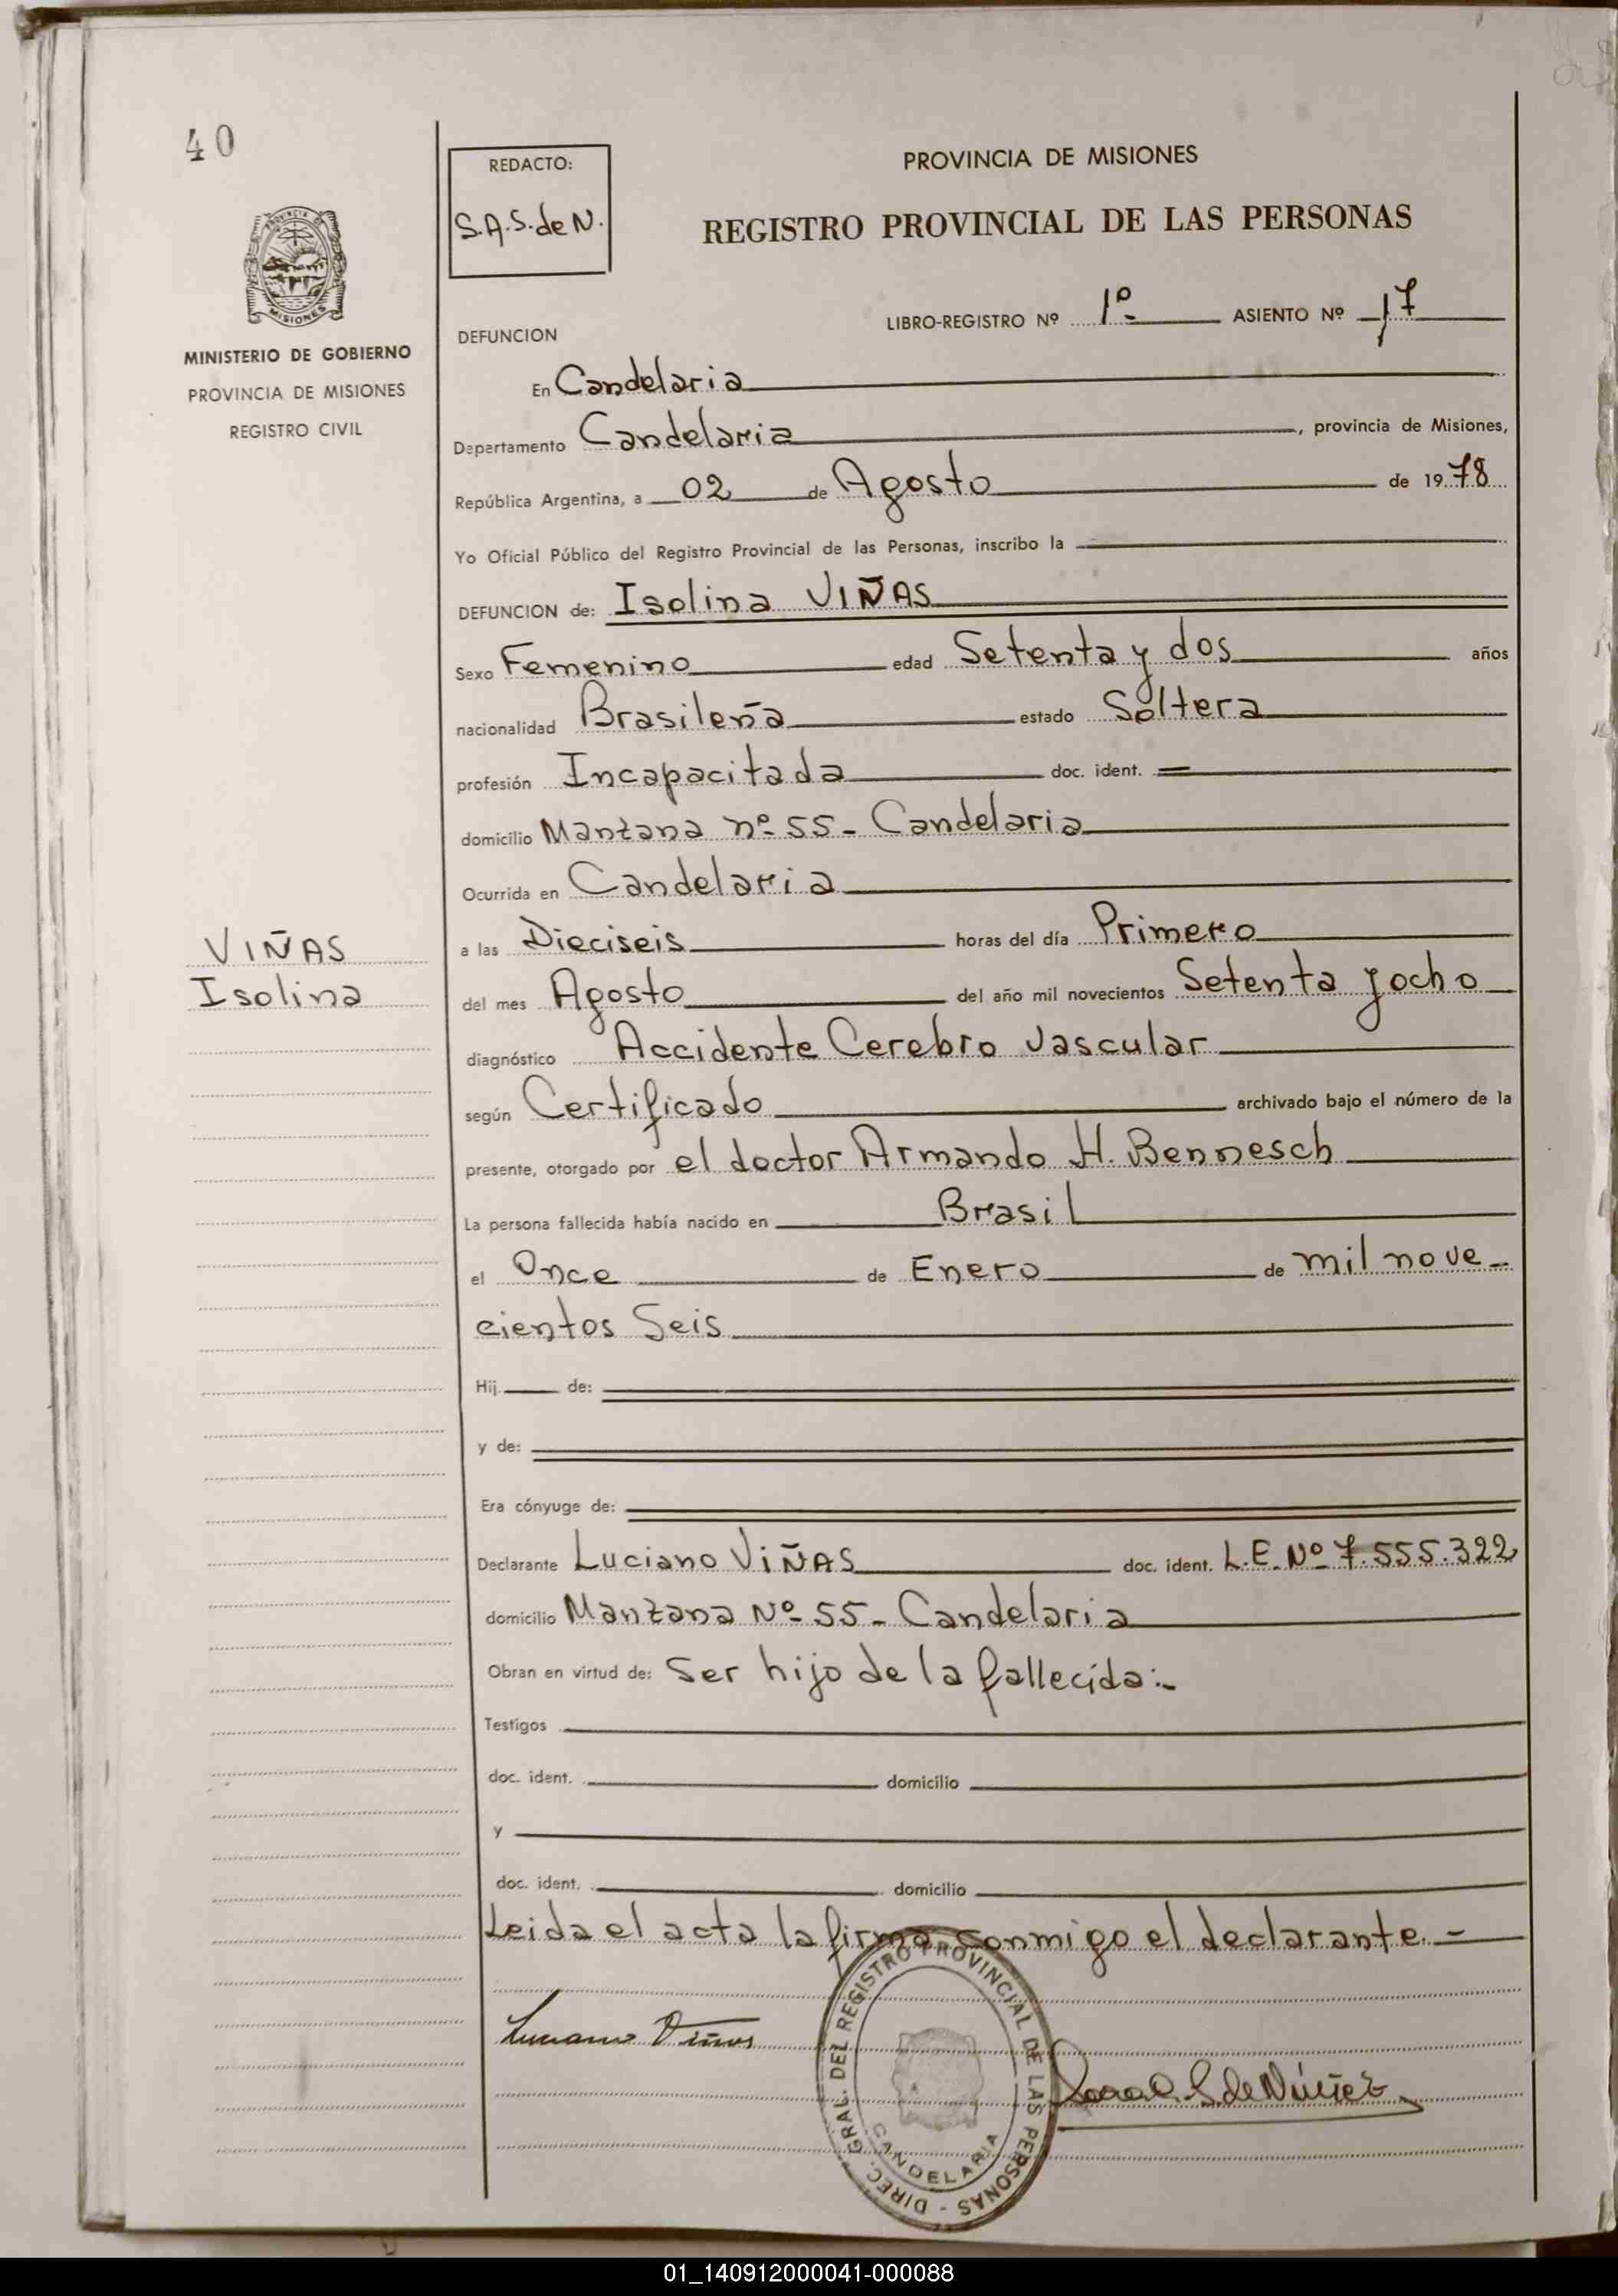 40
REDACTO:
S.A.S. de N.
PROVINCIA DE MISIONES
REGISTRO PROVINCIAL DE LAS PERSONAS
PROVINCIA DE
MISIONES
MINISTERIO DE GOBIERNO
PROVINCIA DE MISIONES
REGISTRO CIVIL
LIBRO-REGISTRO Nº 1º- ASIENTO Nº 17
DEFUNCION
En Candelaria
Departamento Candelaria, provincia de Misiones,
República Argentina, a 02 de Agosto de 1978
Yo Oficial Público del Registro Provincial de las Personas, inscribo la
DEFUNCION de: Isolina VIÑAS
Sexo Femenino edad Setenta y dos años
nacionalidad Brasileña estado Soltera
profesión Incapacitada doc. ident.
domicilio Manzana nº 55- Candelaria
Ocurrida en Candelaria
VIÑAS
Isolina
a las Dieciseis horas del día Primero
del mes Agosto del año mil novecientos Setenta y ocho
diagnóstico Accidente Cerebro Vascular
según Certificado archivado bajo el número de la
presente, otorgado por el doctor Armando H. Bennesch
La persona fallecida había nacido en Brasil
el Once de Enero de mil nove-
cientos Seis
Hij de:
y de:
Era cónyuge de:
Declarante Luciano VIÑAS doc. ident. L.E. Nº 7.555.322
domicilio Manzana Nº 55- Candelaria
Obran en virtud de: Ser hijo de la fallecida:-
Testigos
doc. ident. domicilio
y
doc. ident. domicilio
Leida el acta la firma conmigo el declarante.-
Luciano Viñas
Sara A. S. de Núñez
DIREC. GRAL. DEL REGISTRO PROVINCIAL DE LAS PERSONAS -
CANDELARIA
01_140912000041-000088